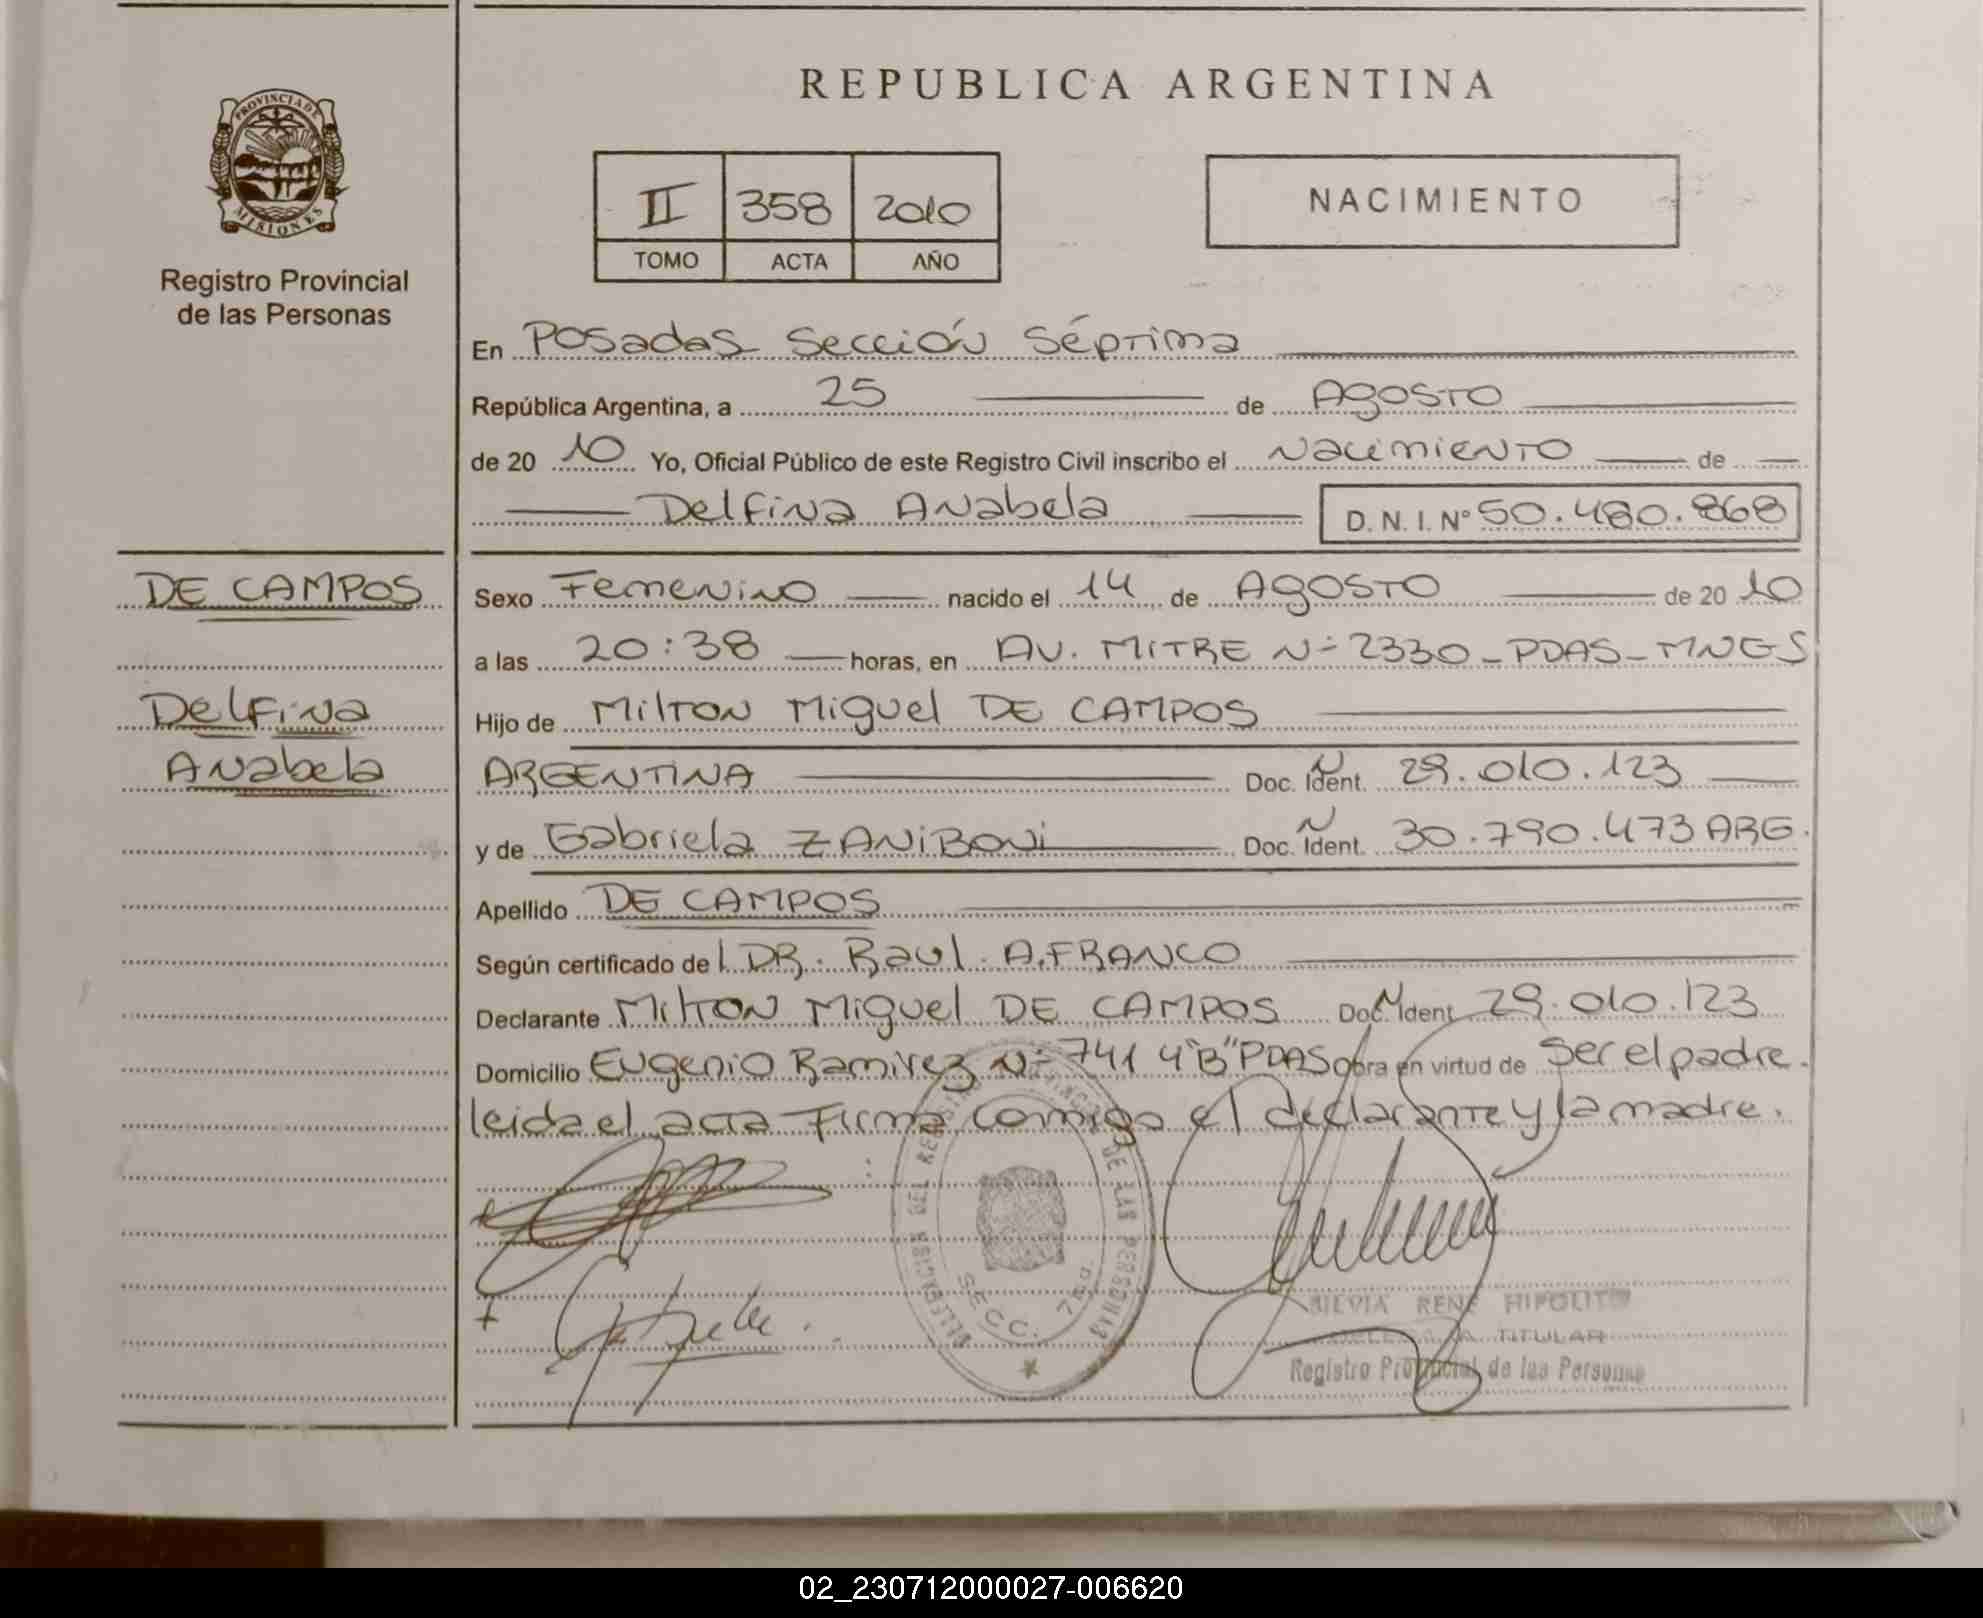 REPUBLICA ARGENTINA
PROVINCIA DE MISIONES
Registro Provincial
de las Personas
II 358 2010
TOMO ACTA AÑO
NACIMIENTO
En Posadas Sección Séptima
República Argentina, a 25 de Agosto
de 20 10 Yo, Oficial Público de este Registro Civil inscribo el Nacimiento de
Delfina Anabela D. N. I. Nº 50.480.868
DE CAMPOS
Delfina
Anabela
Sexo Femenino nacido el 14 de Agosto de 20 10
a las 20:38 horas, en AV. MITRE Nº 2330 - PDAS - MNES
Hijo de Milton Miguel DE CAMPOS
ARGENTINA Doc. Ident. 29.010.123
y de Gabriela ZANIBONI Doc. Ident. 30.790.473 ARG.
Apellido DE CAMPOS
Según certificado de l DR. Raul A. FRANCO
Declarante Milton Miguel DE CAMPOS Doc. Ident. 29.010.123
Domicilio Eugenio Ramirez Nº 741 4º "B" PDAS obra en virtud de Ser el padre.
leida el acta firma conmigo el declarante y la madre.
DELEGACION DEL REGISTRO PROVINCIAL DE LAS PERSONAS
SECC. 7ma.
SILVIA RENE HIPOLITO
DELEGADA TITULAR
Registro Provincial de las Personas
02_230712000027-006620